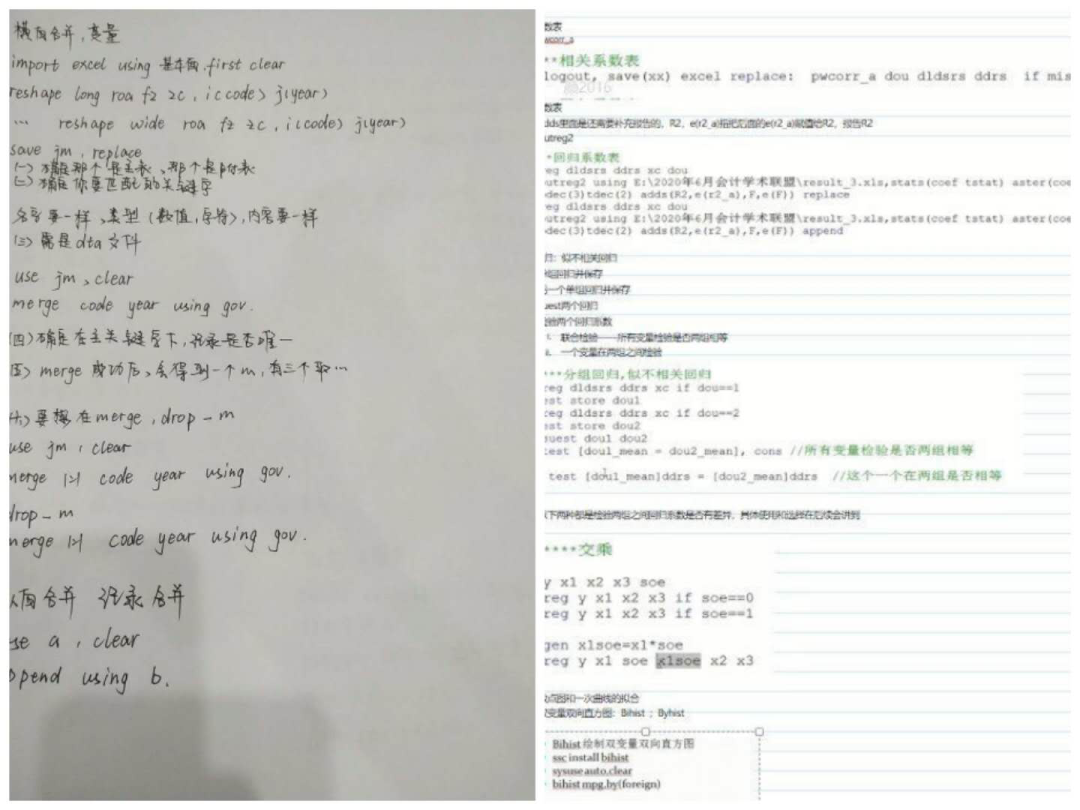 横向合并,变量
import excel using 基本面.first clear
reshape long roa fz zc , i(code) j(year)
... reshape wide roa fz zc , i(code) j(year)
save jm , replace
(一) 确定那个是主表、那个是附表
(二) 确定你要匹配的关键字
名字要一样、类型(数值,字符),内容要一样
(三) 需是dta文件
use jm , clear
merge code year using gov.
(四) 确定在主关键字下,记录是否唯一
五) merge 成功后、会得到一个m,有三个取…
六) 要想在merge , drop _ m
use jm , clear
merge 1:1 code year using gov.
drop _ m
merge 1:1 code year using gov.
向合并 记录合并
se a , clear
ppend using b.
数表
wcorr_a
**相关系数表
logout, save(xx) excel replace: pwcorr_a dou dldsrs ddrs if mis
数表
dds里面是还需要补充报告的,R2,e(r2_a)指把后面的e(r2_a)赋值给R2,报告R2
utreg2
*回归系数表
eg dldsrs ddrs xc dou
utreg2 using E:\2020年6月会计学术联盟\result_3.xls,stats(coef tstat) aster(coe
dec(3)tdec(2) adds(R2,e(r2_a),F,e(F)) replace
eg dldsrs ddrs xc dou
utreg2 using E:\2020年6月会计学术联盟\result_3.xls,stats(coef tstat) aster(coe
dec(3)tdec(2) adds(R2,e(r2_a),F,e(F)) append
归:似不相关回归
组回归并保存
一个单组回归并保存
uest两个回归
验两个回归系数
联合检验——所有变量检验是否两组相等
一个变量在两组之间检验
***分组回归,似不相关回归
reg dldsrs ddrs xc if dou==1
est store dou1
reg dldsrs ddrs xc if dou==2
est store dou2
suest dou1 dou2
test [dou1_mean = dou2_mean], cons //所有变量检验是否两组相等
test [dou1_mean]ddrs = [dou2_mean]ddrs //这个一个在两组是否相等
以下两种都是检验两组之间回归系数是否有差异,具体使用和选择在后续会讲到
****交乘
y x1 x2 x3 soe
reg y x1 x2 x3 if soe==0
reg y x1 x2 x3 if soe==1
gen x1soe=x1*soe
reg y x1 soe x1soe x2 x3
点图和一次曲线的拟合
变量双向直方图:Bihist ;Byhist
Bihist 绘制双变量双向直方图
ssc install bihist
sysuse auto,clear
bihist mpg,by(foreign)